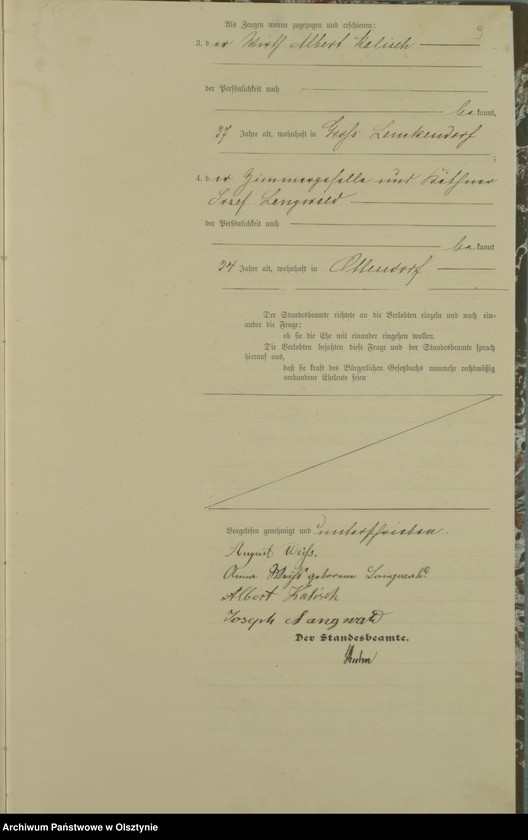 9
Als Zeugen waren zugezogen und erschienen:
3. der Wirth Albert Kalisch
der Persönlichkeit nach
bekannt,
37 Jahre alt, wohnhaft in Gross Lemkendorf
;
4. der Zimmergeselle und Käthner
Josef Langwald
der Persönlichkeit nach
bekannt
34 Jahre alt, wohnhaft in Ottendorf
Der Standesbeamte richtete an die Verlobten einzeln und nach ein-
ander die Frage:
ob sie die Ehe mit einander eingehen wollen.
Die Verlobten bejahten diese Frage und der Standesbeamte sprach
hierauf aus,
daß sie kraft des Bürgerlichen Gesetzbuchs nunmehr rechtmäßig
verbundene Eheleute seien
Vorgelesen genehmigt und unterschrieben.
August Weiß.
Anna Weiß geborene Langwald.
Albert Kalisch
Joseph Langwald
Der Standesbeamte.
Archiwum Państwowe w Olsztynie